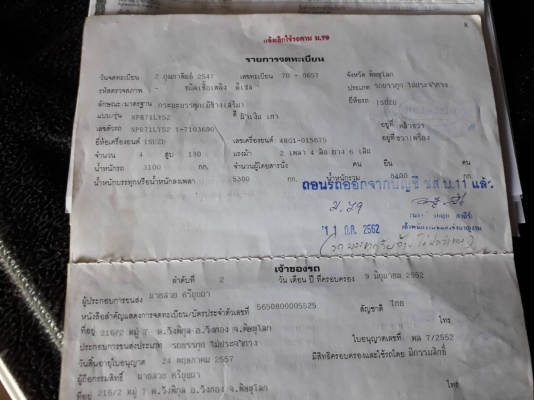 แจ้งเลิกใช้รถตาม ม.79
รายการจดทะเบียน
วันจดทะเบียน 2 กุมภาพันธ์ 2547 เลขทะเบียน 70-0657 จังหวัด พิษณุโลก
รหัสตรวจสภาพ - ชนิดเชื้อเพลิง ดีเซล ประเภท รถบรรทุก ไม่ประจำทาง
ลักษณะ/มาตรฐาน กระบะบรรทุก(มีข้างเสริม) ยี่ห้อรถ ISUZU
แบบ/รุ่น NPR71LY52 สี ฟ้า เงิน เทา
เลขตัวรถ NPR71LY52 T-7103690 อยู่ที่
ยี่ห้อเครื่องยนต์ ISUZU เลขเครื่องยนต์ อยู่ที่
จำนวน 4 สูบ 130 แรงม้า 2 เพลา 4 ล้อ ยาง 6 เส้น
น้ำหนักรถ 3100 กก. จำนวนผู้โดยสารนั่ง คน ยืน คน
น้ำหนักบรรทุกหรือน้ำหนักลงเพลา 5300 กก. น้ำหนักรวม 8400 กก.
ถอนรถออกจากบัญชี ขส.บ.11 แล้ว
ม.79
11 ก.ค. 2562
เจ้าของรถ
ลำดับที่ 2 วัน เดือน ปี ที่ครอบครอง 9 มิถุนายน 2552
ผู้ประกอบการขนส่ง นายสวย
หนังสือสำคัญแสดงการจดทะเบียน/บัตรประจำตัวเลขที่ 5650800005525 สัญชาติ ไทย
ที่อยู่ 216/2 หมู่ 7 ต.วังพิกุล อ.วังทอง จ.พิษณุโลก โทร
ประกอบการขนส่งประเภท รถบรรทุก ไม่ประจำทาง ใบอนุญาตเลขที่ พล 7/2552
วันสิ้นอายุใบอนุญาต 24 พฤษภาคม 2557 มีสิทธิครอบครองและใช้รถโดย มีกรรมสิทธิ์
ผู้ถือกรรมสิทธิ์ นายสวย
ที่อยู่ 216/2 หมู่ 7 ต.วังพิกุล อ.วังทอง จ.พิษณุโลก โทร